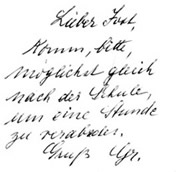 Lieber Jost,
Komm, bitte,
möglichst gleich
nach der Schule,
um eine Stunde
zu verabreden.
Gruß Gr.